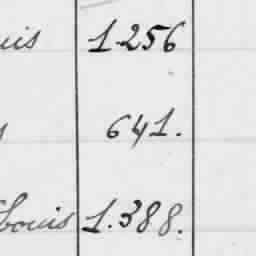 1.256
641.
Louis 1.388.